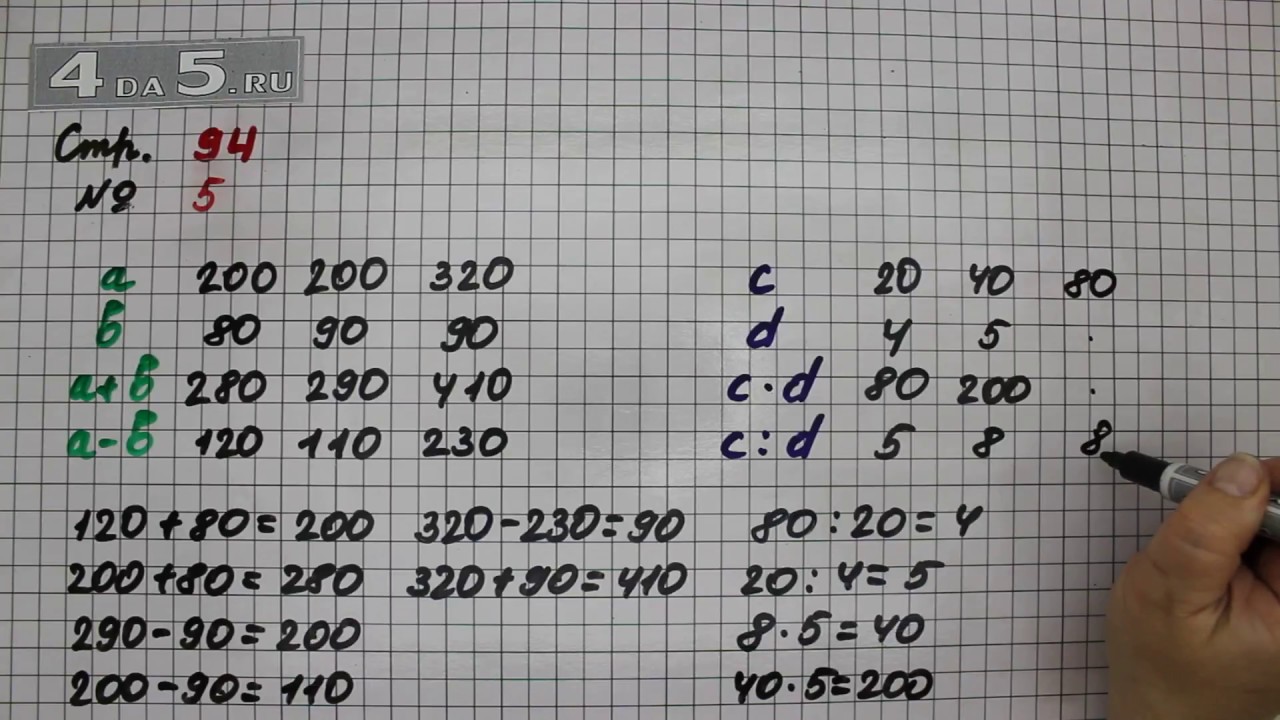 4DA5.RU
Стр. 94
№ 5
a 200 200 320
b 80 90 90
a+b 280 290 410
a-b 120 110 230
c 20 40 80
d 4 5 .
c·d 80 200 .
c:d 5 8 8
120+80=200 320-230=90
200+80=280 320+90=410
290-90=200
200-90=110
80:20=4
20:4=5
8·5=40
40·5=200